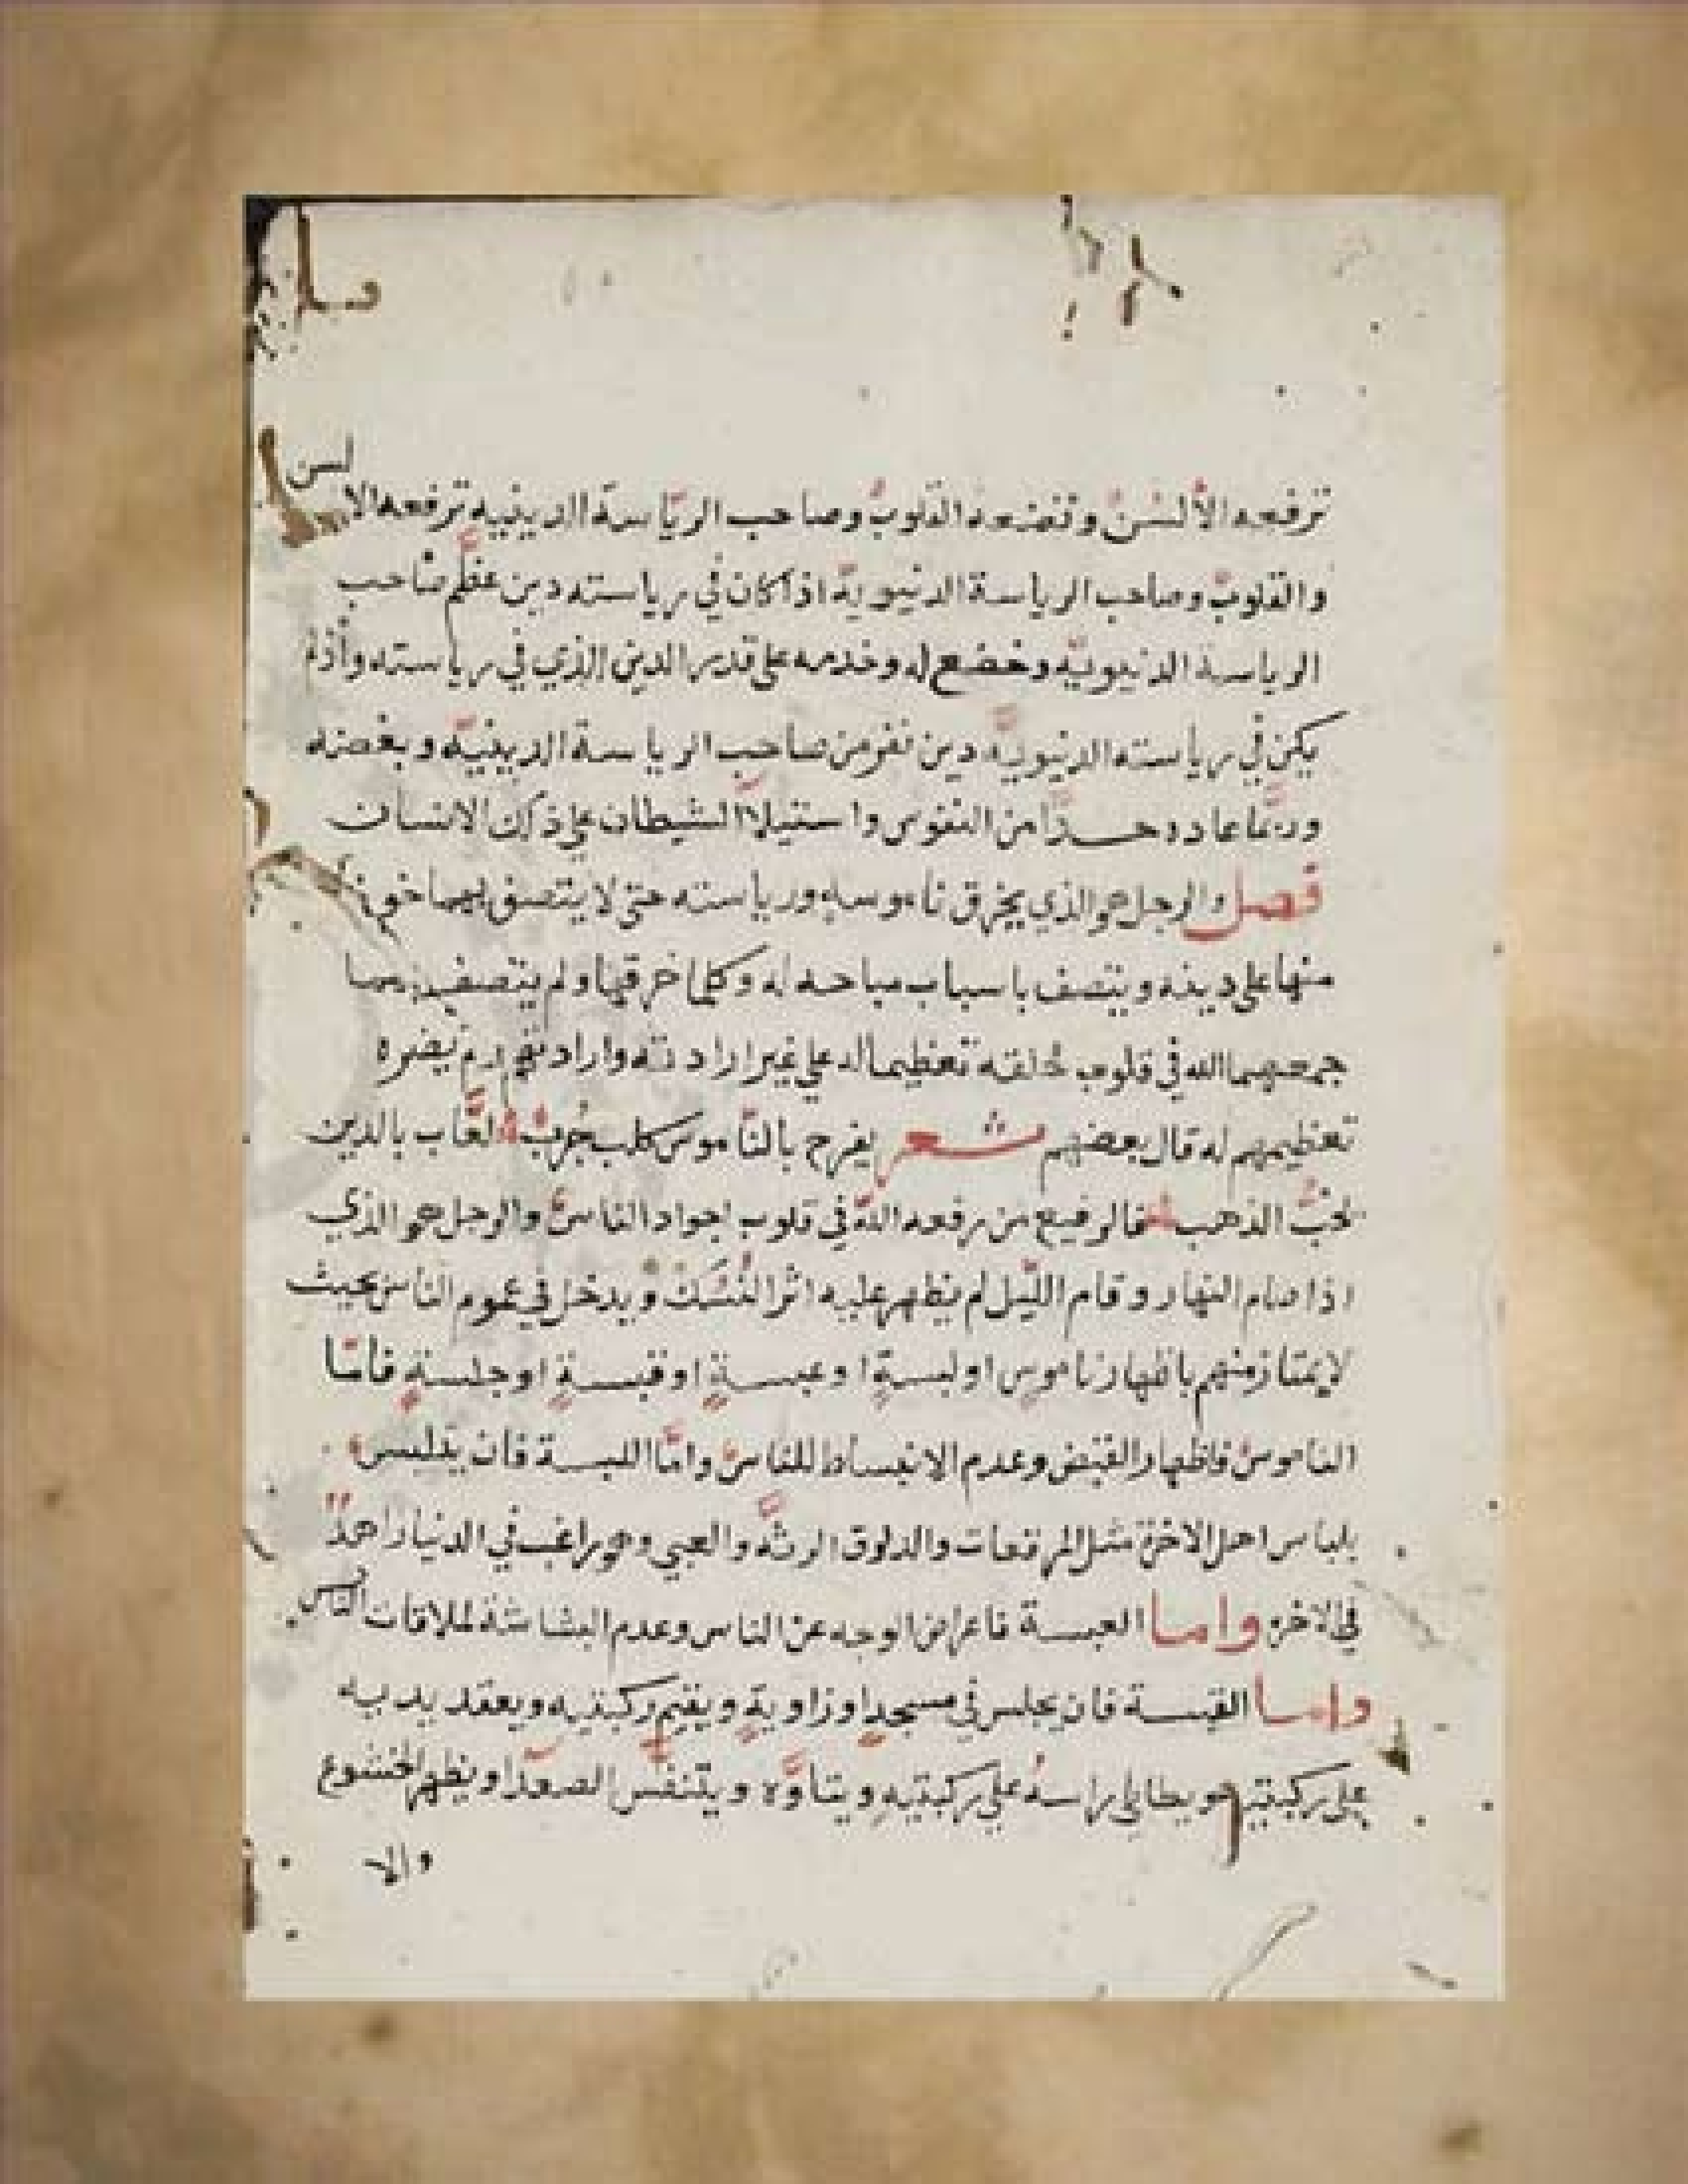 ترفعه الألسن وتضعه القلوب وصاحب الرياسة الدينيه ترفعه الالسن
والقلوب وصاحب الرياسة الدنيوية اذا كان في رياسته دين عظم صاحب
الرياسة الدنيويه وخضع له وخدمه على قدر الدين الذي في رياسته واذ لم
يكن في رياسته الدنيويه دين نفر من صاحب الرياسة الدينيه وبغضه
وربما عاده حسدا من النفوس واستيلا الشيطان على ذلك الانسان
فصل والرجل هو الذي يخرق ناموسه ورياسته حتى لا يتصف بهما خوفا
منها على دينه ويتصف باسباب مباحه له وكلما خرقها ولم يتصف بهما
جمعهما الله في قلوب خلقه تعظيما له على غير ارادته واراد تهم لم يضره
تعظيمهم له قال بعضهم شعر يفرح بالناموس كلب جرب لعاب بالدين
لحب الذهب فالرفيع من رفعه الله في قلوب اجواد الناس والرجل هو الذي
اذا صام النهار وقام الليل لم يظهر عليه اثر النسك ويدخل في عموم الناس بحيث
لا يمتاز منهم باظهار ناموس او لبسة او عبسة او قبسة او جلسة فاما
الناموس فاظهار القبض وعدم الانبساط للناس واما اللبسة فان يتلبس
بلباس اهل الاخرة مثل المرقعات والدلوق الرثه والعبي وهو راغب في الدنيا زاهد
في الاخرة واما العبسة فاعراض الوجه عن الناس وعدم البشاشة لملاقات الناس
واما القبسة فان يجلس في مسجد او زاوية ويقيم ركبتيه ويعقد يديه
على ركبتيه ويطاطي راسه على ركبتيه ويتاوه ويتنفس الصعدا ويظهر الخشوع
والا